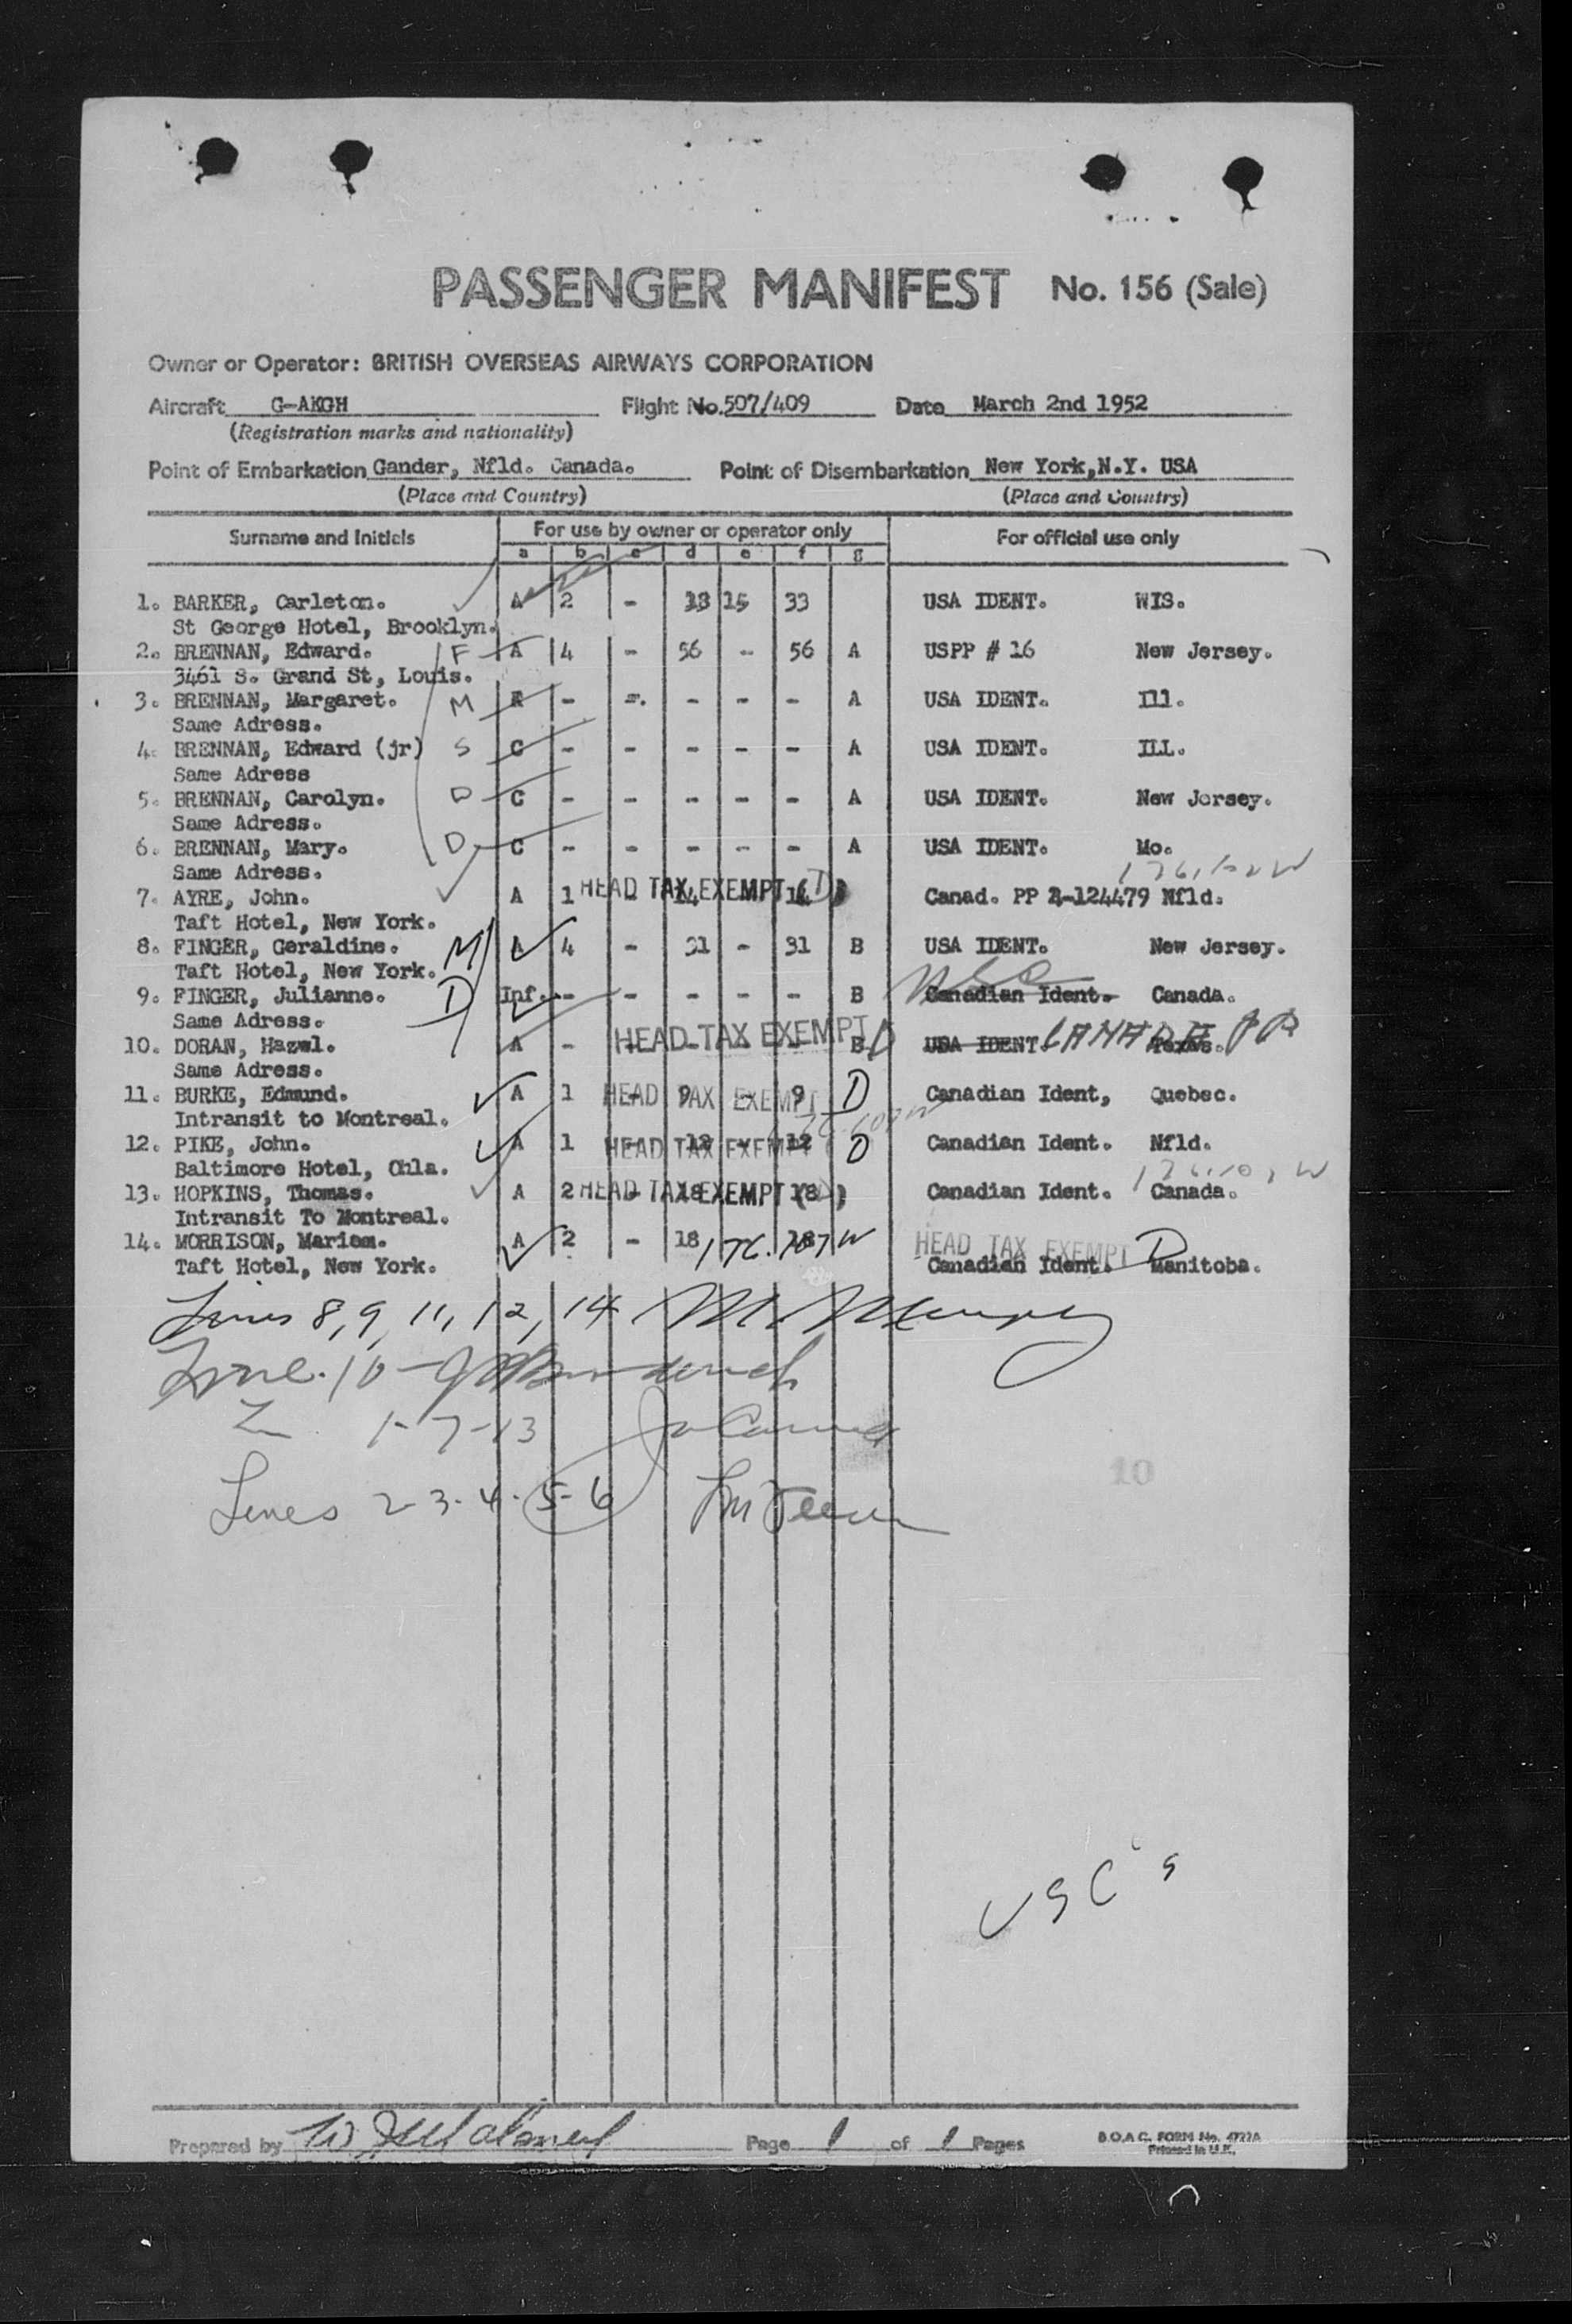 PASSENGER MANIFEST No. 156 (Sale)
Owner or Operator: BRITISH OVERSEAS AIRWAYS CORPORATION
Aircraft G-AKGH Flight No. 507/409 Date March 2nd 1952
(Registration marks and nationality)
Point of Embarkation Gander, Nfld. Canada. Point of Disembarkation New York, N.Y. USA
(Place and Country) (Place and Country)
Surname and Initials For use by owner or operator only For official use only
a b c d e f g
1. BARKER, Carleton. A 2 - 18 15 33 USA IDENT. WIS.
St George Hotel, Brooklyn.
2. BRENNAN, Edward. F A 4 - 56 - 56 A USPP # 16 New Jersey.
3461 S. Grand St, Louis.
3. BRENNAN, Margaret. M A - - - - - A USA IDENT. Ill.
Same Adress.
4. BRENNAN, Edward (jr) S C - - - - - A USA IDENT. ILL.
Same Adress
5. BRENNAN, Carolyn. D C - - - - - A USA IDENT. New Jersey.
Same Adress.
6. BRENNAN, Mary. D C - - - - - A USA IDENT. Mo.
Same Adress.
7. AYRE, John. A 1 HEAD TAX EXEMPT (D) - 14 - 14 Canad. PP 124479 Nfld.
Taft Hotel, New York.
8. FINGER, Geraldine. M A 4 - 31 - 31 B USA IDENT. New Jersey.
Taft Hotel, New York.
9. FINGER, Julianne. D Inf. - - - - - B Canadian Ident. Canada.
Same Adress.
10. DORAN, Hazwl. A - HEAD TAX EXEMPT D - - - - B USA IDENT. CANADA PP Texas.
Same Adress.
11. BURKE, Edmund. A 1 HEAD TAX EXEMPT D - 9 - 9 Canadian Ident, Quebec.
Intransit to Montreal.
12. PIKE, John. A 1 HEAD TAX EXEMPT D - 12 - 12 Canadian Ident. Nfld.
Baltimore Hotel, Chla.
13. HOPKINS, Thomas. A 2 HEAD TAX EXEMPT - 18 - 18 Canadian Ident. Canada.
Intransit To Montreal.
14. MORRISON, Mariam. A 2 - 18 18 HEAD TAX EXEMPT D
Taft Hotel, New York. Canadian Ident. Manitoba.
Lines 8, 9, 11, 12, 14
Line 10
1-7-13
Lines 2-3-4-5-6
10
USC's
Prepared by Page 1 of 1 Pages B.O.A.C. FORM No. 4722A
Printed in U.K.